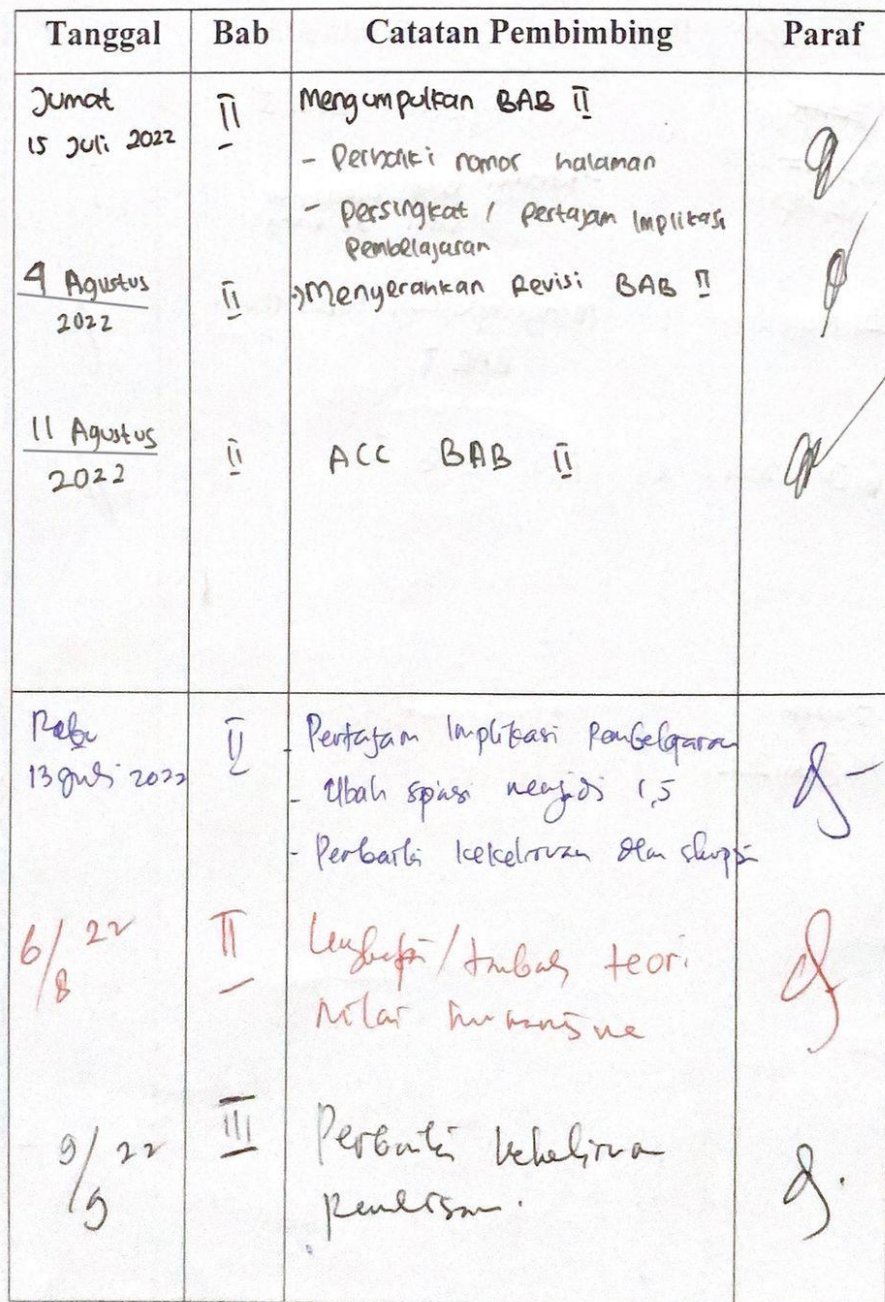 Tanggal Bab Catatan Pembimbing Paraf
Jumat II Mengumpulkan BAB II
15 Juli 2022 - Perbaiki nomor halaman
- Persingkat / pertajam Implikasi
Pembelajaran
4 Agustus II Menyerahkan Revisi BAB II
2022
11 Agustus II ACC BAB II
2022
Rabu II - Pertajam Implikasi Pembelajaran
13 Juli 2022 - Ubah spasi menjadi 1,5
- Perbaiki kekeliruan dlm skripsi
6/8 22 II Lengkapi / tambah teori
nilai humanisme
9/9 22 III Perbaiki kekeliruan
penulisan.